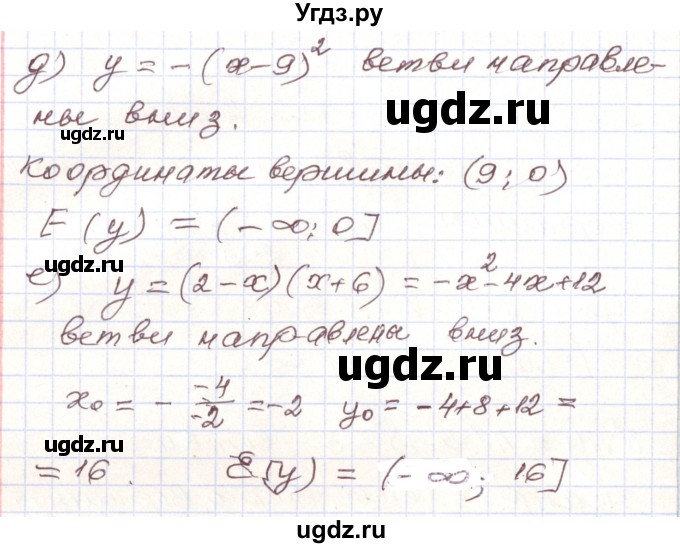 Угдз.ру
д) y = -(x-9)² ветви направле-
ны вниз.
ugdz.ru
ugdz.ru
Координаты вершины: (9; 0)
E(y) = (-∞; 0]
ugdz.ru
ugdz.ru
е) y = (2-x)(x+6) = -x²-4x+12
ветви направлены вниз.
ugdz.ru
x₀ = - -4/-2 = -2 y₀ = -4+8+12 =
ugdz.ru
= 16. E(y) = (-∞; 16]
ugdz.ru
ugdz.ru